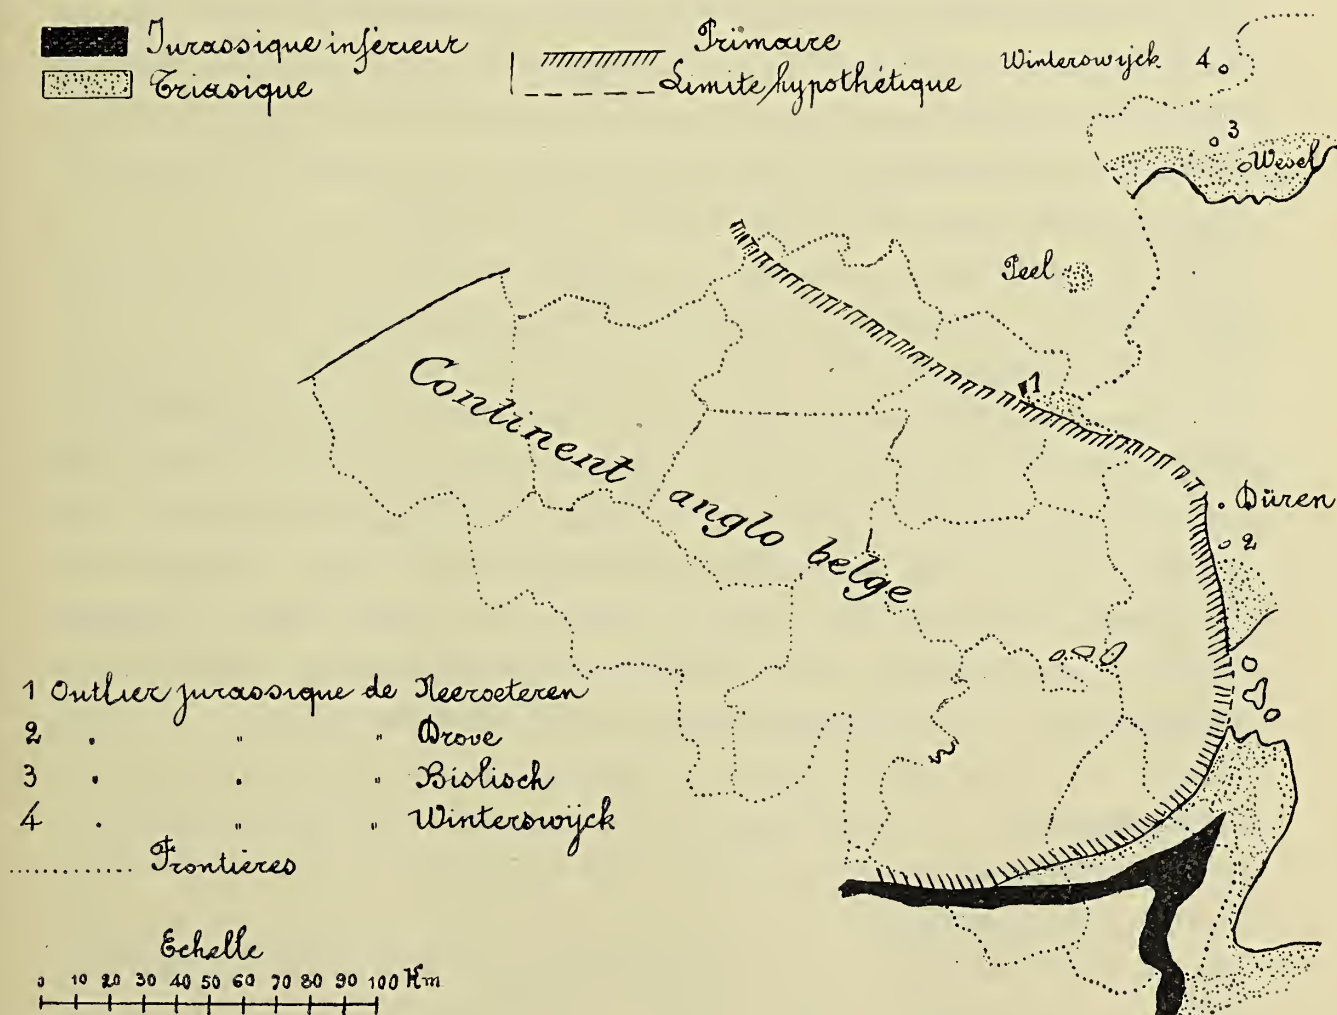 Jurassique inférieur
Triasique
Primaire
Limite hypothétique
Winterswijck 4
3
Wesel
Peel
1
Continent anglo belge
Düren
2
1 Outlier jurassique de Neeroeteren
2 . " " Drove
3 . . " Bislisch
4 . " " Winterswijck
Frontières
Echelle
0 10 20 30 40 50 60 70 80 90 100 Km